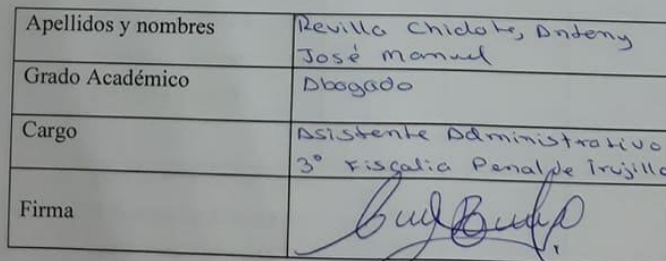 Apellidos y nombres
Revilla Chidote, Andeny
José Manuel
Grado Académico
Abogado
Cargo
Asistente Administrativo
3° Fiscalia Penal de Trujillo
Firma